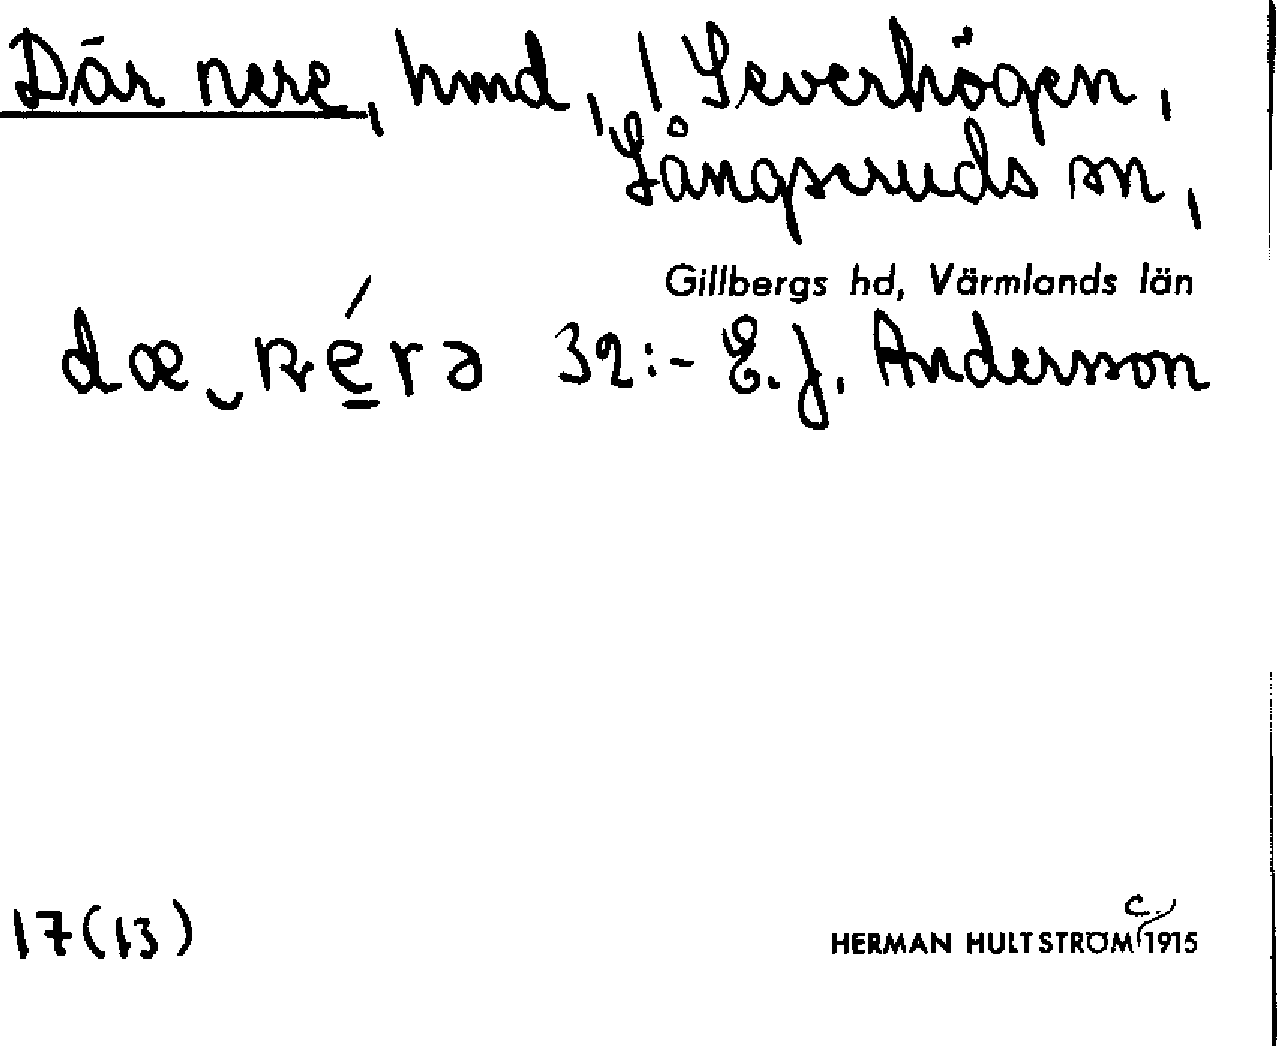 Där nere, hmd, ! Severhögen,
Långseruds sn,
Gillbergs hd, Värmlands län
dæ ̮ néra 32:- E. J. Andersson
17(13)
HERMAN HULTSTRÖM c. 1915